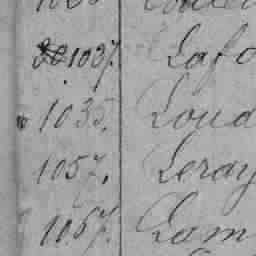 1037. Lafo
1035. Loud
1057. Leray
1067. Lam